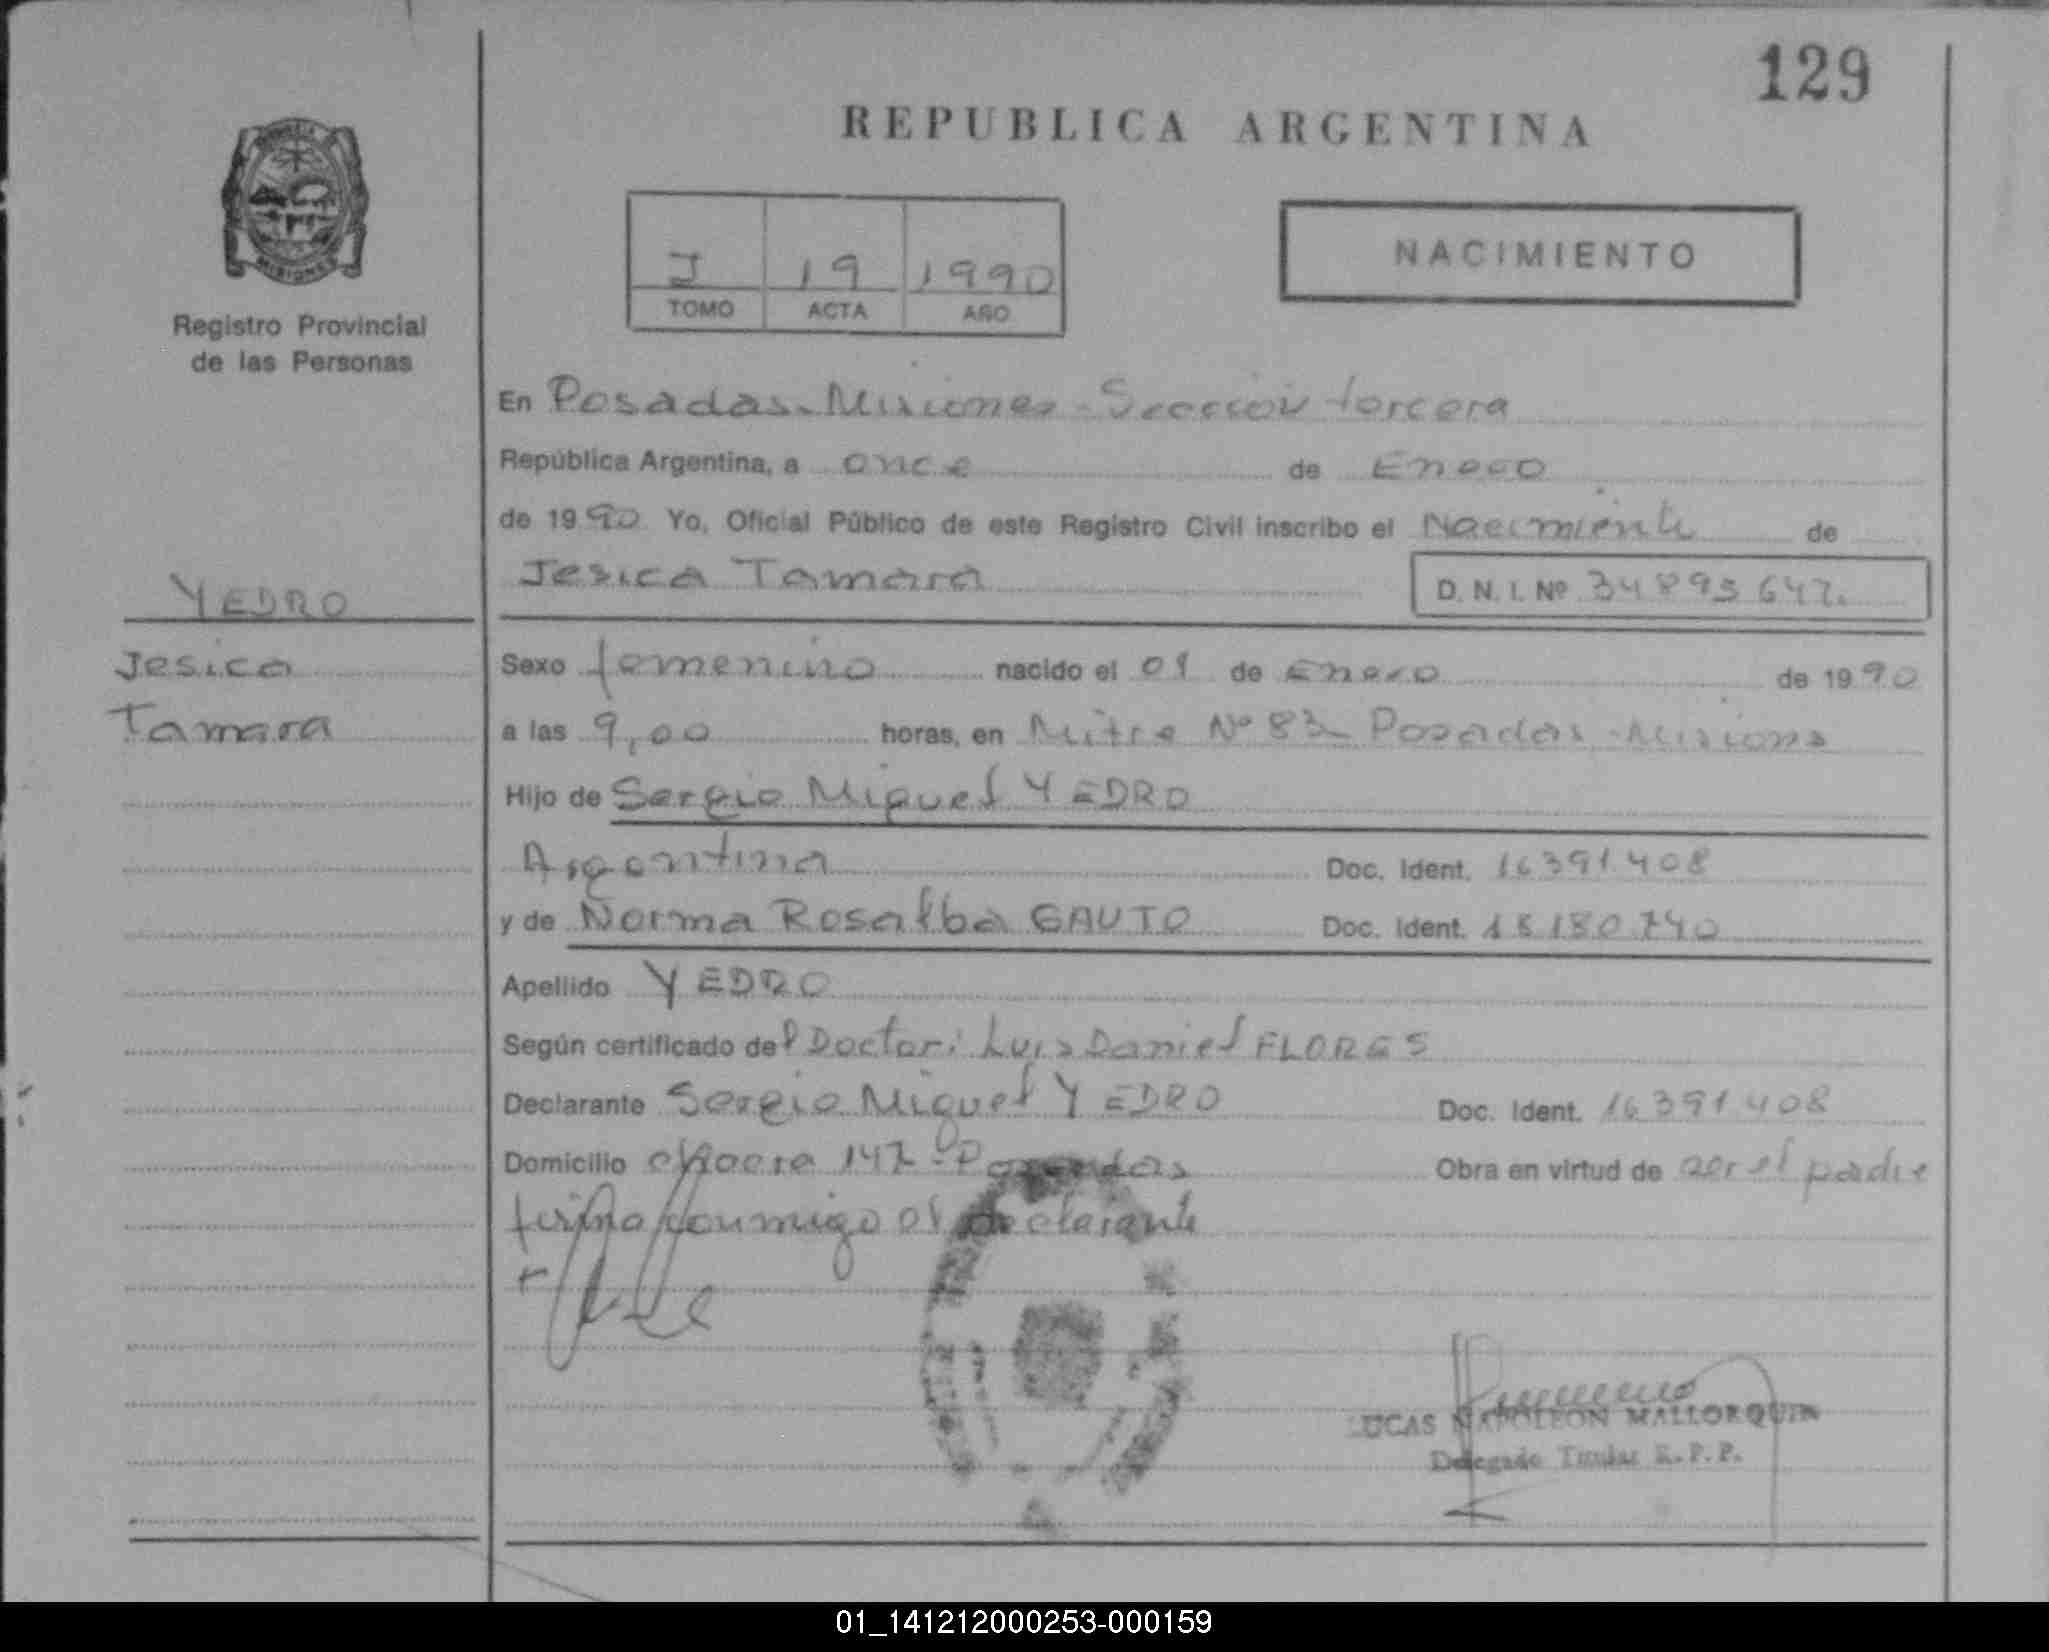 129
REPUBLICA ARGENTINA
I 19 1990
TOMO ACTA AÑO
NACIMIENTO
MISIONES
Registro Provincial
de las Personas
En Posadas-Misiones-Seccion tercera
República Argentina, a once de Enero
de 1990 Yo, Oficial Público de este Registro Civil inscribo el Nacimiento de
Jesica Tamara D. N. I. Nº 34895647.
YEDRO
Jesica
Tamara
Sexo femenino nacido el 01 de Enero de 1990
a las 9,00 horas, en Mitre Nº 83 Posadas-Misiones
Hijo de Sergio Miguel YEDRO
Argentina Doc. Ident. 16391.408
y de Norma Rosalba GAUTO Doc. Ident. 18180740
Apellido YEDRO
Según certificado del Doctor: Luis Daniel FLORES
Declarante Sergio Miguel YEDRO Doc. Ident. 16391408
Domicilio 147 - Posadas Obra en virtud de ser el padre
firma conmigo el declarante
LUCAS NAPOLEON MALLORQUIN
Delegado Titular R.P.P.
01_141212000253-000159